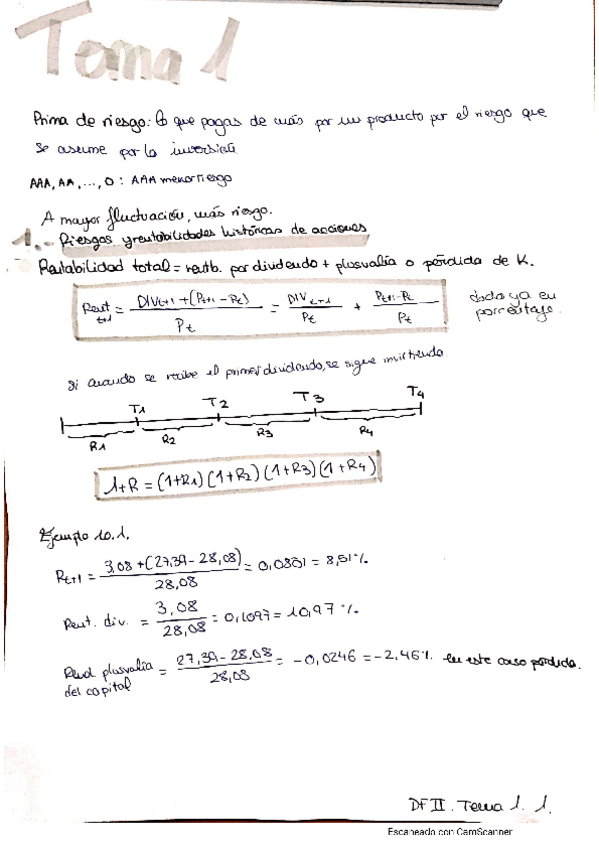 Tema 1
Prima de riesgo: lo que pagas de más por un producto por el riesgo que
se asume por la inversión
AAA, AA, ..., D : AAA menor riesgo
A mayor fluctuación, más riesgo.
1.- Riesgos y rentabilidades históricas de acciones
Rentabilidad total = rentb. por dividendo + plusvalía o pérdida de K.
Rent t+1 = DIVt+1 + (Pt+1 - Pt) / Pt = DIVt+1 / Pt + Pt+1 - Pt / Pt dado ya en porcentaje.
Si cuando se recibe el primer dividendo, se sigue invirtiendo
T1 T2 T3 T4
R1 R2 R3 R4
1+R = (1+R1)(1+R2)(1+R3)(1+R4)
Ejemplo 10.1.
Rt+1 = 3,08 + (27,39 - 28,08) / 28,08 = 0,0851 = 8,51%
Rent. div. = 3,08 / 28,08 = 0,1097 = 10,97%
Rend plusvalía del capital = 27,39 - 28,08 / 28,08 = -0,0246 = -2,46% en este caso pérdida.
DF II. Tema 1. 1.
Escaneado con CamScanner